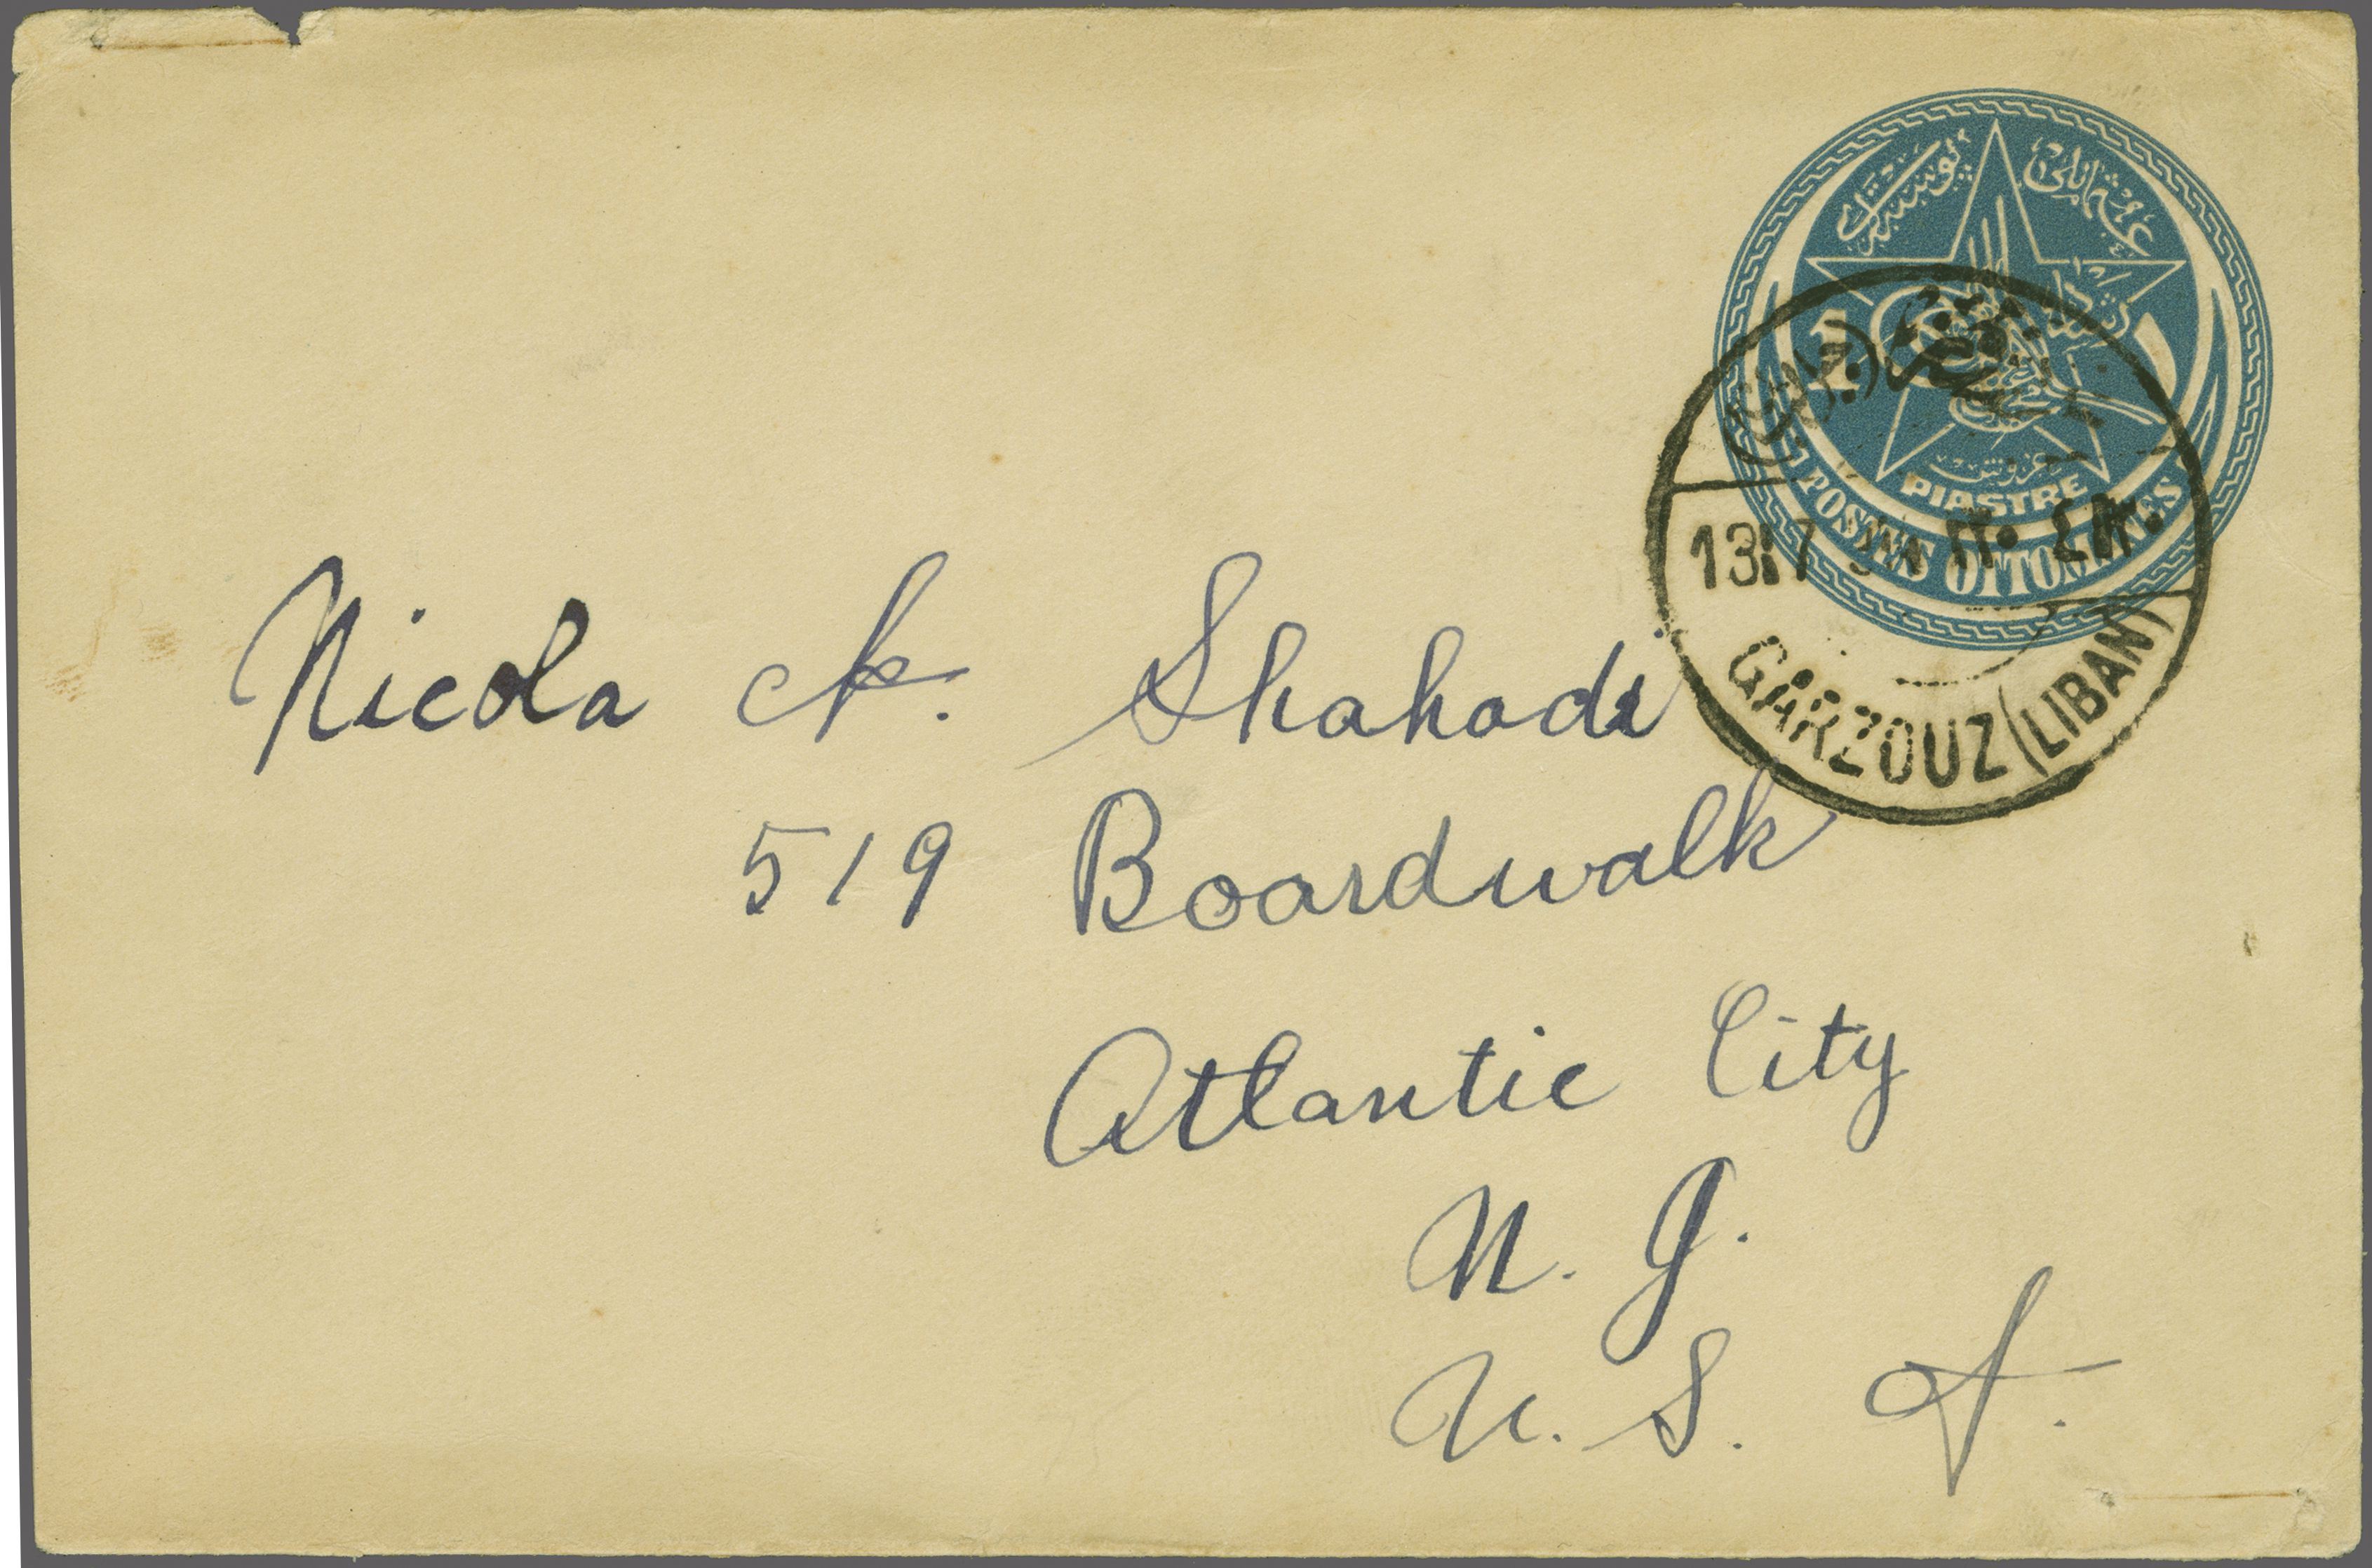 1
غروش
PIASTRE
POSTES OTTOMANES
GARZOUZ (LIBAN)
Nicola A. Shahadi
519 Boardwalk
Atlantic City
N. J.
U. S. A.